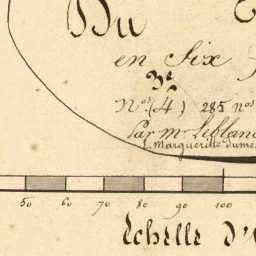 Du
en Six
3e
Nos (4) 285 nos
Par mr Leblanc
Margueritte Dume
50 60 70 80 90 100
Echelle d'